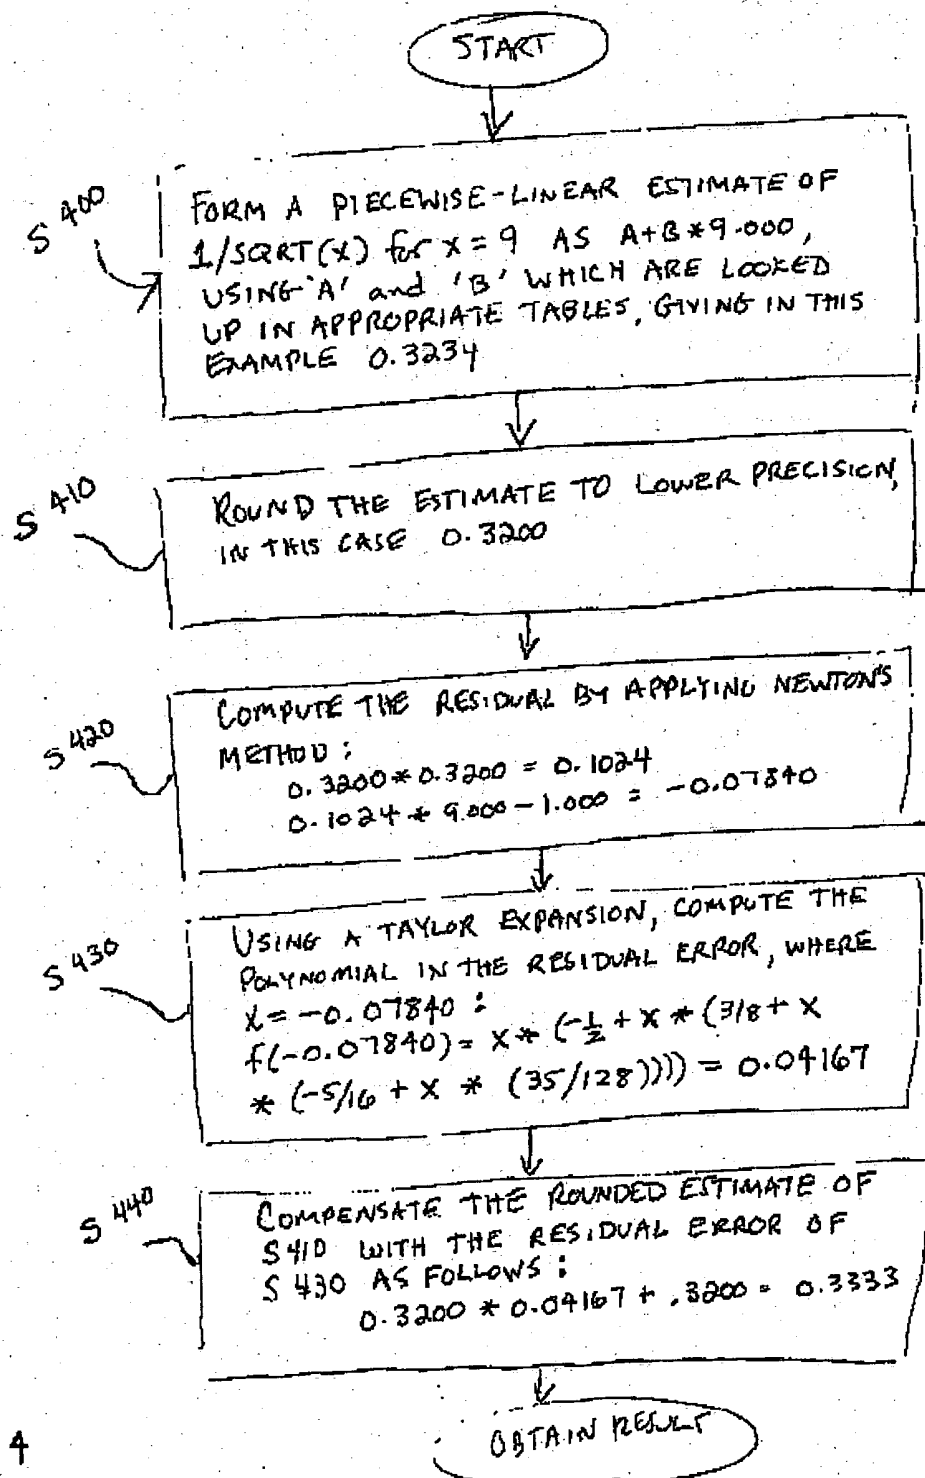 START
S400
FORM A PIECEWISE-LINEAR ESTIMATE OF
1/SQRT(X) for x = 9 AS A+B*9.000,
USING 'A' and 'B' WHICH ARE LOOKED
UP IN APPROPRIATE TABLES, GIVING IN THIS
EXAMPLE 0.3234
S410
ROUND THE ESTIMATE TO LOWER PRECISION,
IN THIS CASE 0.3200
S420
COMPUTE THE RESIDUAL BY APPLYING NEWTON'S
METHOD:
0.3200*0.3200 = 0.1024
0.1024 * 9.000 - 1.000 = -0.07840
S430
USING A TAYLOR EXPANSION, COMPUTE THE
POLYNOMIAL IN THE RESIDUAL ERROR, WHERE
X = -0.07840:
f(-0.07840) = X * (-1/2 + X * (3/8 + X
* (-5/16 + X * (35/128)))) = 0.04167
S440
COMPENSATE THE ROUNDED ESTIMATE OF
S410 WITH THE RESIDUAL ERROR OF
S430 AS FOLLOWS:
0.3200 * 0.04167 + .3200 = 0.3333
OBTAIN RESULT
4